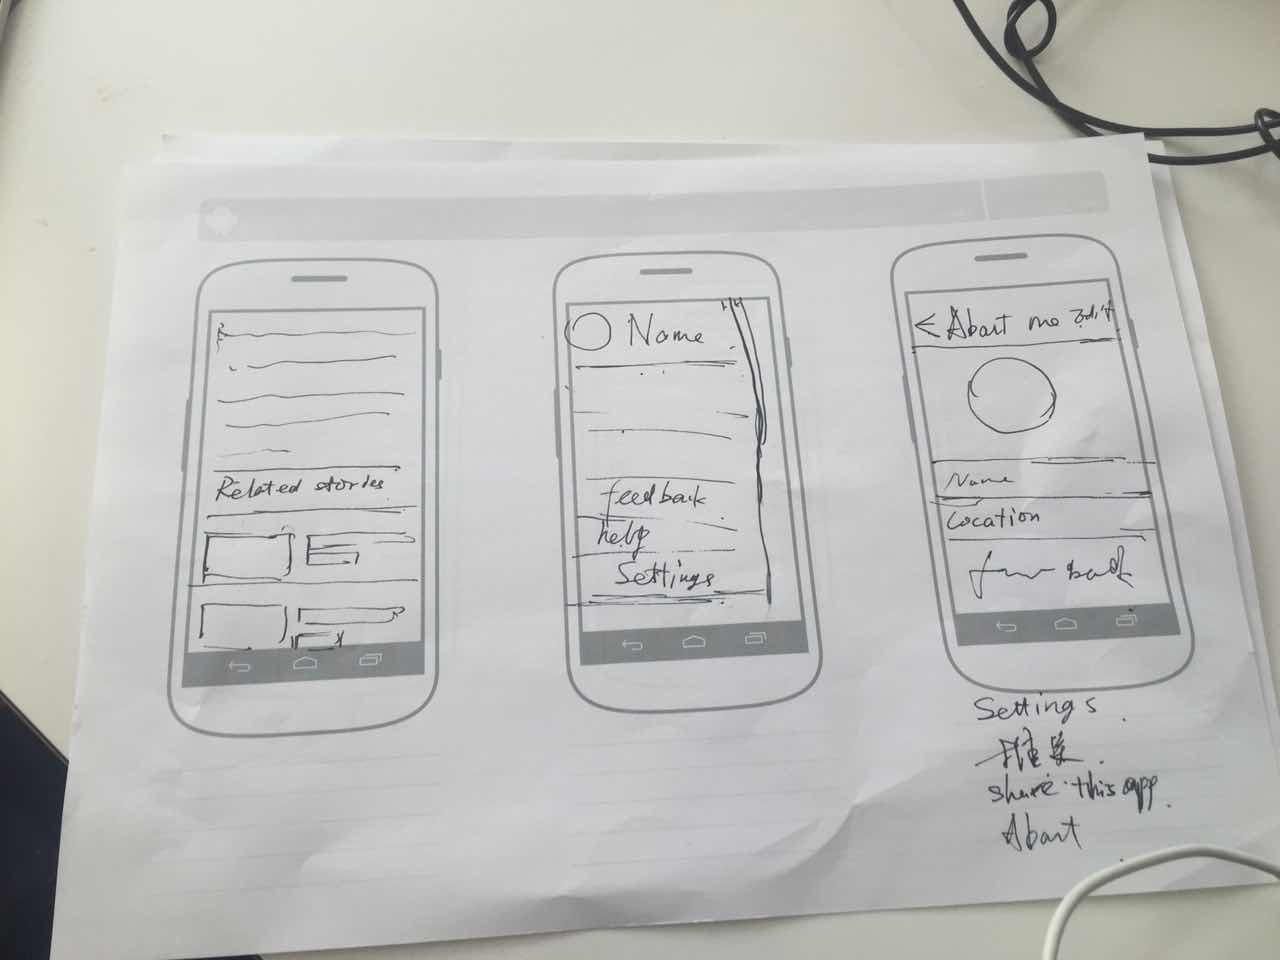 Related stories
Name
feedback
help
Settings
< Abart me Edit
Name
Location
back
Settings.
share this app.
Abart